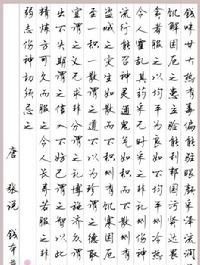 钱味甘大热有毒偏能驻颜采泽流润
饥解困厄之患立验能利邦国污贤达畏
贪者服之以均平为良如不均平则冷热
令人霍乱其药采无时采之非理则伤神
流行能召神灵通鬼气如积而不散则有
盗贼之灾生如散而不积则有饥寒
至一积一散谓之道不以为珍谓之德取
宜谓之义无求非分谓之礼博施济众
出不失期谓之信入不妨己谓之智以此
精炼方可久而服之令人长寿若服之
弱志伤神切须忌之
唐 张说 钱本草